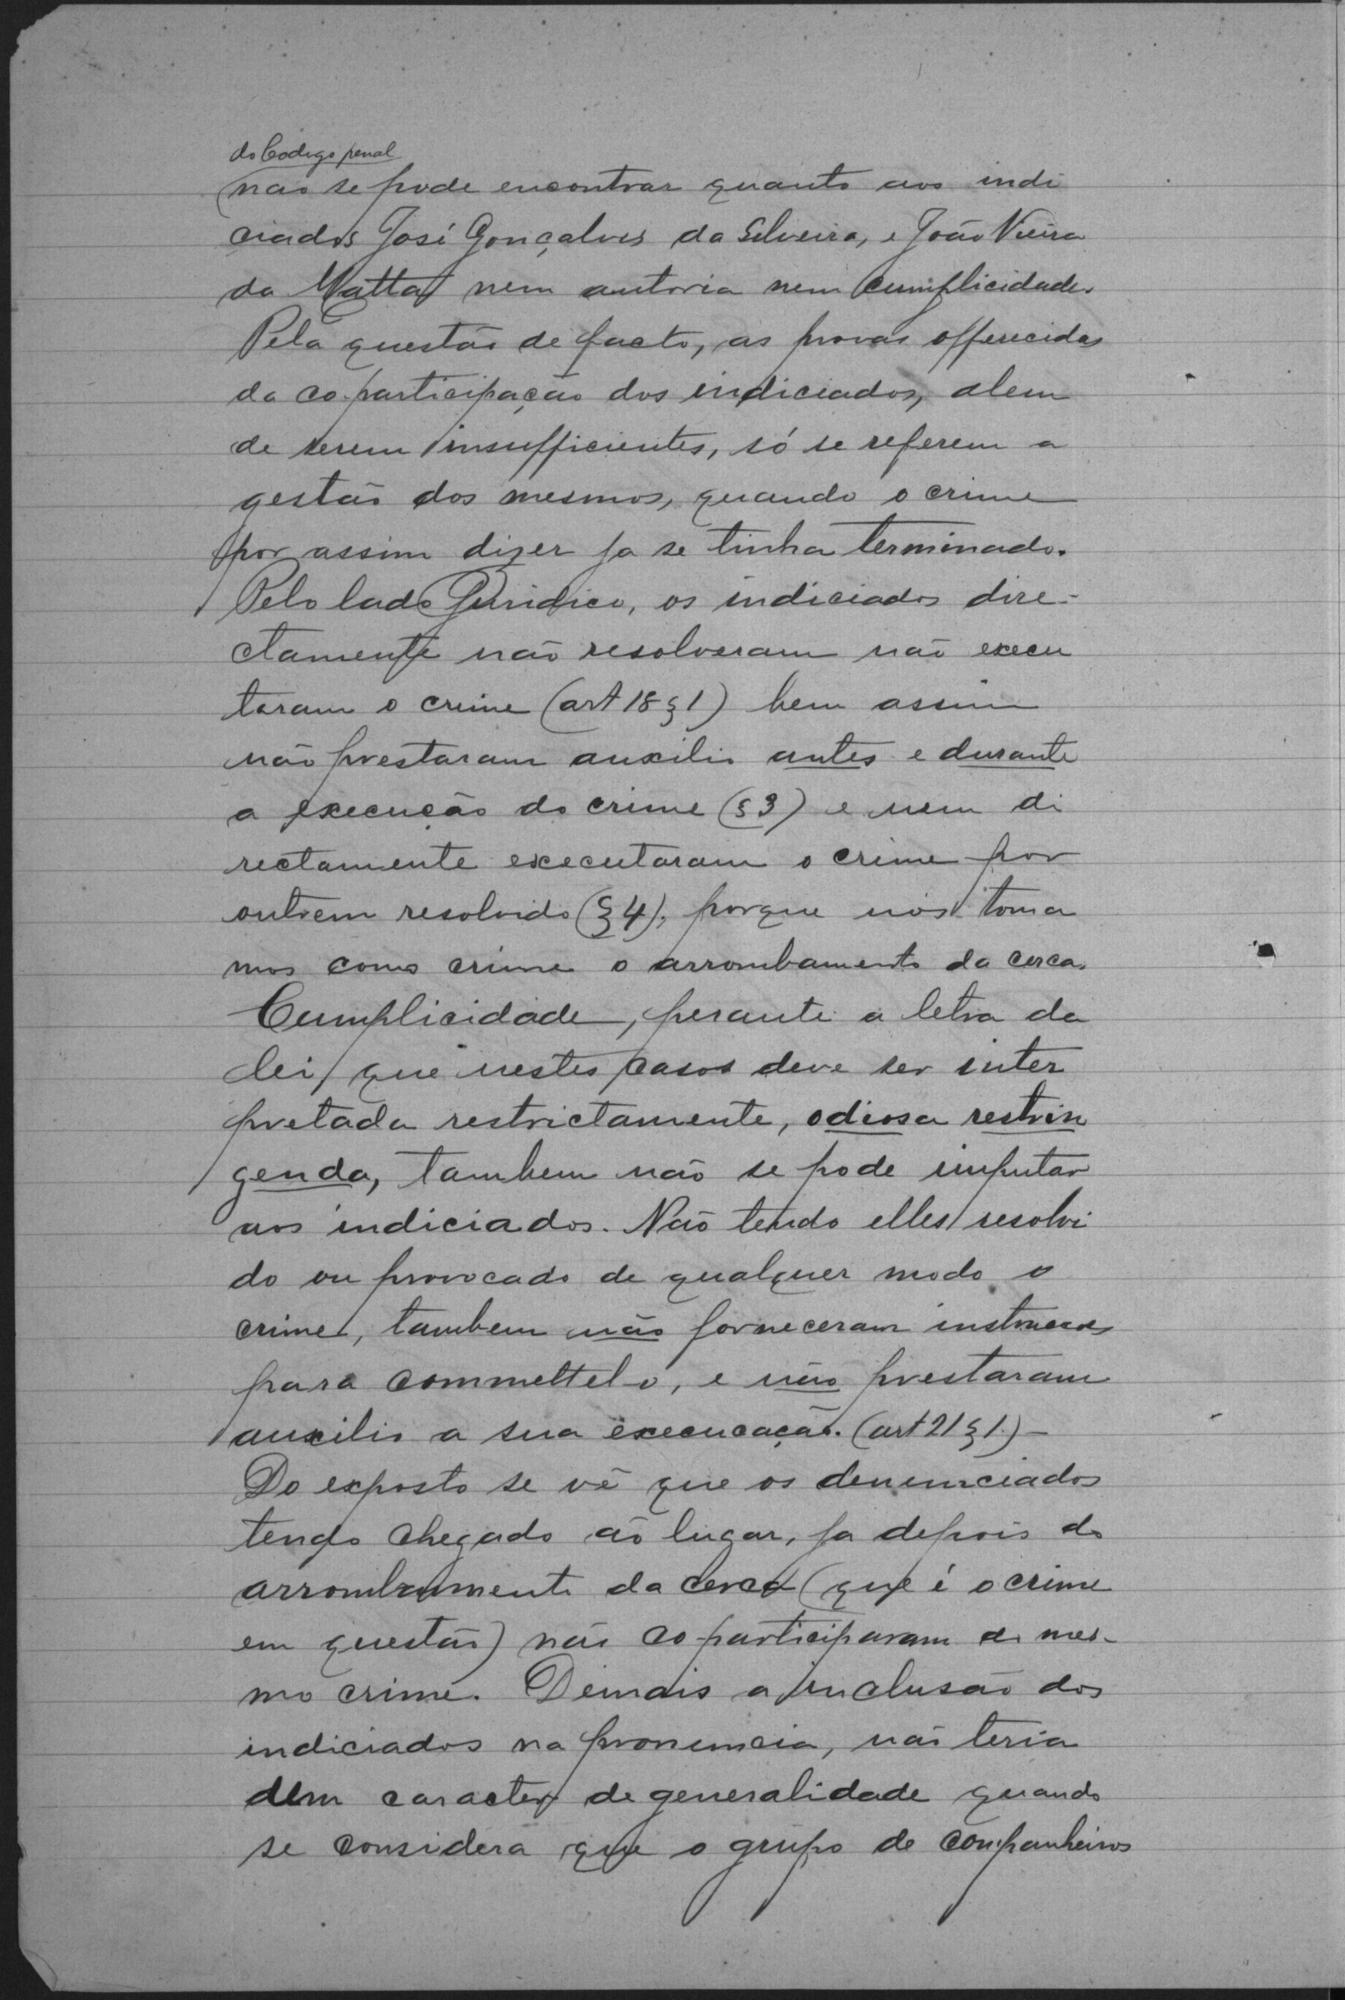 do Codigo penal
não se pode encontrar quanto aos indi
ciados José Gonçalves da Silveira, e João Vieira
da Matta nem autoria nem cumplicidade.
Pela questão de facto, as provas offerecidas
da co-participação dos indiciados, alem
de serem insufficientes, só se referem a
gestão dos mesmos, quando o crime
por assim dizer ja se tinha terminado.
Pelo lado Juridico, os indiciados dire-
ctamente não resolveram não execu
taram o crime (art 18 § 1) bem assim
não prestaram auxilio antes e durante
a execução do crime (§ 3) e nem di
rectamente executaram o crime por
outrem resolvido (§ 4), porque nós toma
mos como crime o arrombamento da cerca.
Cumplicidade, perante a letra da
lei, que nestes casos deve ser inter
pretada restrictamente, odiosa restrin
genda, tambem não se pode imputar
aos indiciados. Não tendo elles resolvi
do ou provocado de qualquer modo o
crime, tambem não forneceram instrucções
para commettel-o, e não prestaram
auxilio a sua execucação. (art 21 § 1.) -
Do exposto se vê que os denunciados
tendo chegado ao lugar, ja depois do
arrombamento da cerca (que é o crime
em questão) não co-participaram do mes-
mo crime. Demais a inclusão dos
indiciados na pronuncia, não teria
dem caracter de generalidade quando
se considera que o grupo de companheiros